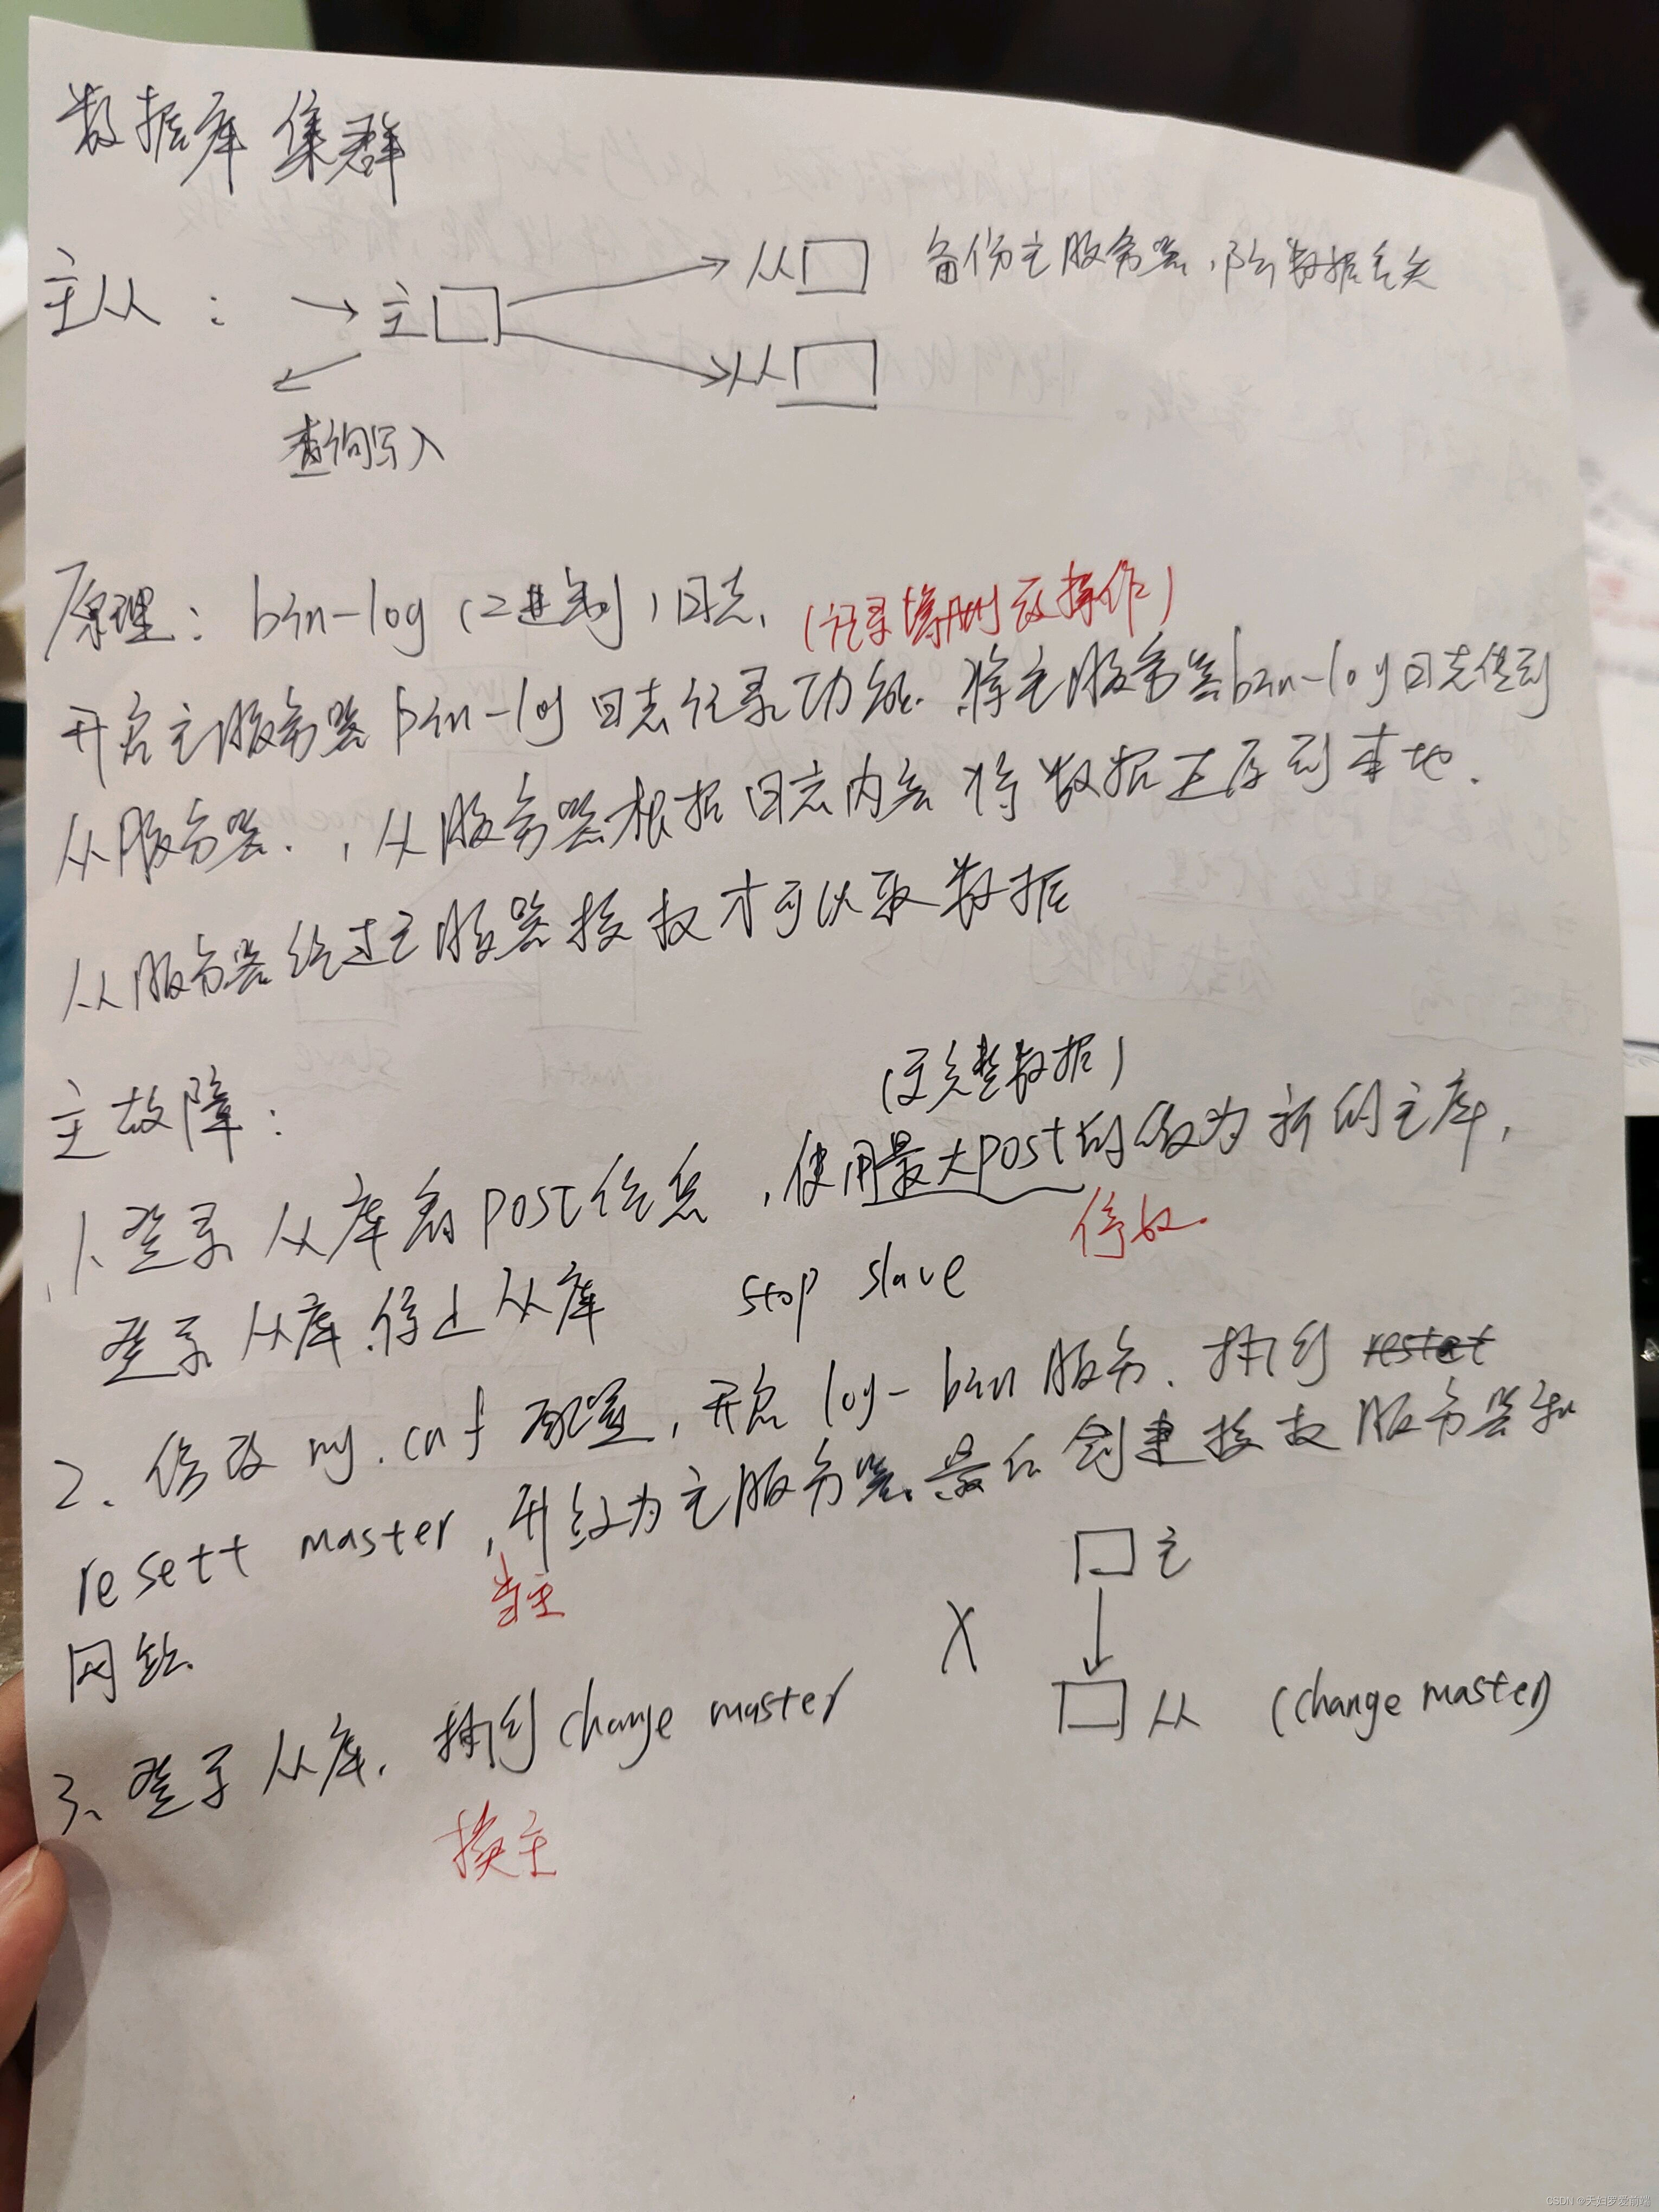 数据库集群
主从: 主 从 备份主服务器,防数据丢失
从
查询写入
原理: bin-log(2进制)日志, (记录增删改操作)
开启主服务器bin-log日志记录功能.将主服务器bin-log日志传到
从服务器.,从服务器根据日志内容将数据还原到本地.
从服务器经过主服务器授权才可以取数据
(更完整数据)
主故障:
1、登录从库看post信息,使用最大post的做为新的主库,
停从.
登录从库.停止从库 stop slave
2、修改my.cnf配置,开启log-bin服务.执行 restet
resett master,升级为主服务器.最后创建授权服务器和
当主
网络.
主
X
从 (change master)
3、登录从库.执行change master
换主
CSDN @天妇罗爱前端